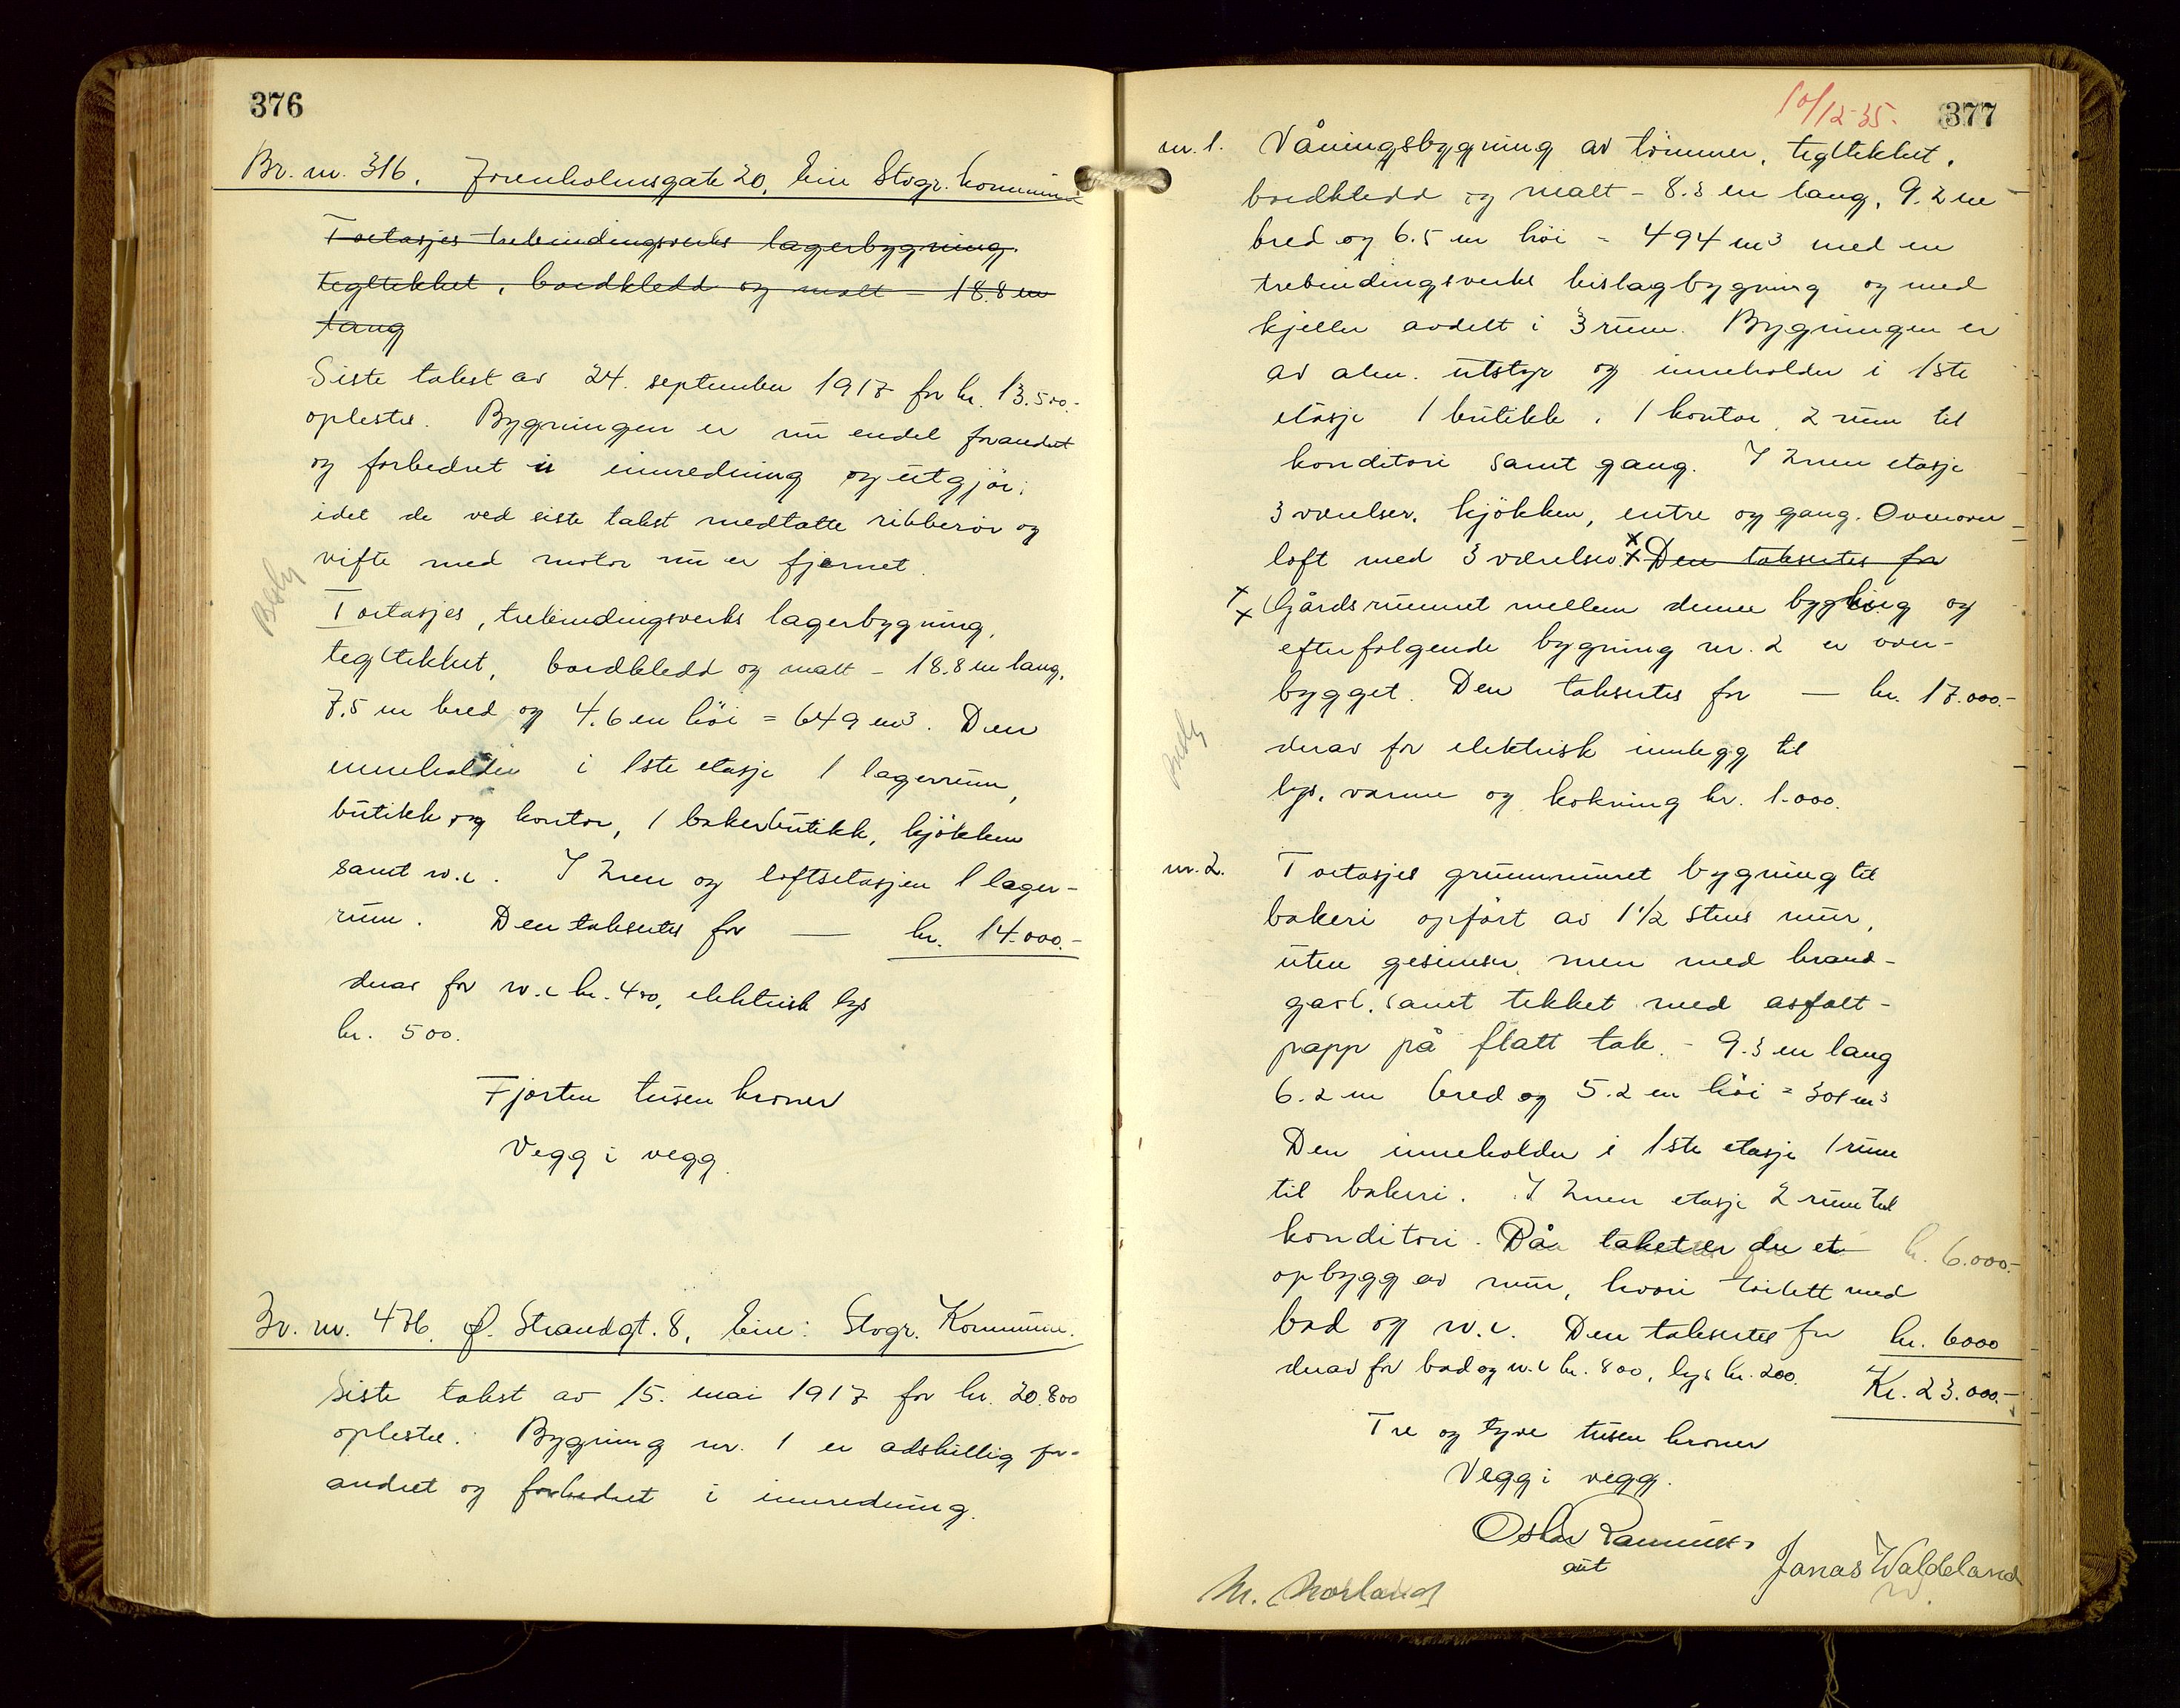 376
Br. nr. 316. Jorenholmsgate 20, Eier Stvgr. kommune
Toetasjes trebindingsverks lagerbygning.
tegltekket, bordkledd og malt - 18.8 m
lang
Siste takst av 24. september 1917 for kr. 13.500.-
oplestes. Bygningen er nu endel forandret
og forbedret i innredning og utgjør:
idet de ved siste takst medtatte ribberør og
vifte med motor nu er fjernet.
Toetasjes, trebindingsverks lagerbygning,
tegltekket, bordkledd og malt - 18.8 m lang,
7.5 m bred og 4.6 m høi = 649 m³. Den
inneholder i 1ste etasje 1 lagerrum,
butikk og kontor, 1 bakerbutikk, kjøkken
samt w.c. I 2nen og loftsetasjen 1 lager-
rum. Den takseres for — kr. 14.000.-
derav for w.c kr. 400, elektrisk lys
kr. 500.
Fjorten tusen kroner
Vegg i vegg.
Br. nr. 476. Ø. Strandgt. 8, Eier: Stvgr. Kommune.
Siste takst av 15. mai 1917 for kr. 20.800
oplestes. Bygning nr. 1 er adskillig for-
andret og forbedret i innredning.
10/12-35. 377
nr. 1. Våningsbygning av tømmer, tegltekket,
bordkledd og malt - 8.3 m lang, 9.2 m
bred og 6.5 m høi = 494 m³ med en
trebindingsverks bislagbygning og med
kjeller avdelt i 3 rum. Bygningen er
av alm. utstyr og inneholder i 1ste
etasje 1 butikk, 1 kontor, 2 rum til
konditori samt gang. I 2nen etasje
3 værelser, kjøkken, entre og gang. Ovenover
loft med 3 værelser. x x Den takseres for
x x Gårdsrummet mellem denne bygning og
efterfølgende bygning nr. 2 er over-
bygget. Den takseres for — kr. 17.000.-
derav for elektrisk innlegg til
lys, varme og kokning kr. 1.000.
nr. 2. Toetasjes grunnmuret bygning til
bakeri opført av 1 1/2 stens mur,
uten gesimser, men med brand-
gavl, samt tekket med asfalt-
papp på flatt tak. - 9.3 m lang
6.2 m bred og 5.2 m høi = 301 m³
Den inneholder i 1ste etasje 1 rum
til bakeri. I 2nen etasje 2 rum til
konditori. På taket er der et kr. 6.000.-
opbygg av mur, hvori toilett med
bad og w.c. Den takseres for kr. 6000
derav for bad og w.c kr. 800, lys kr. 200. Kr. 23.000.-
Tre og tyve tusen kroner
Vegg i vegg.
Oskar
M. Norland Jonas Waldeland